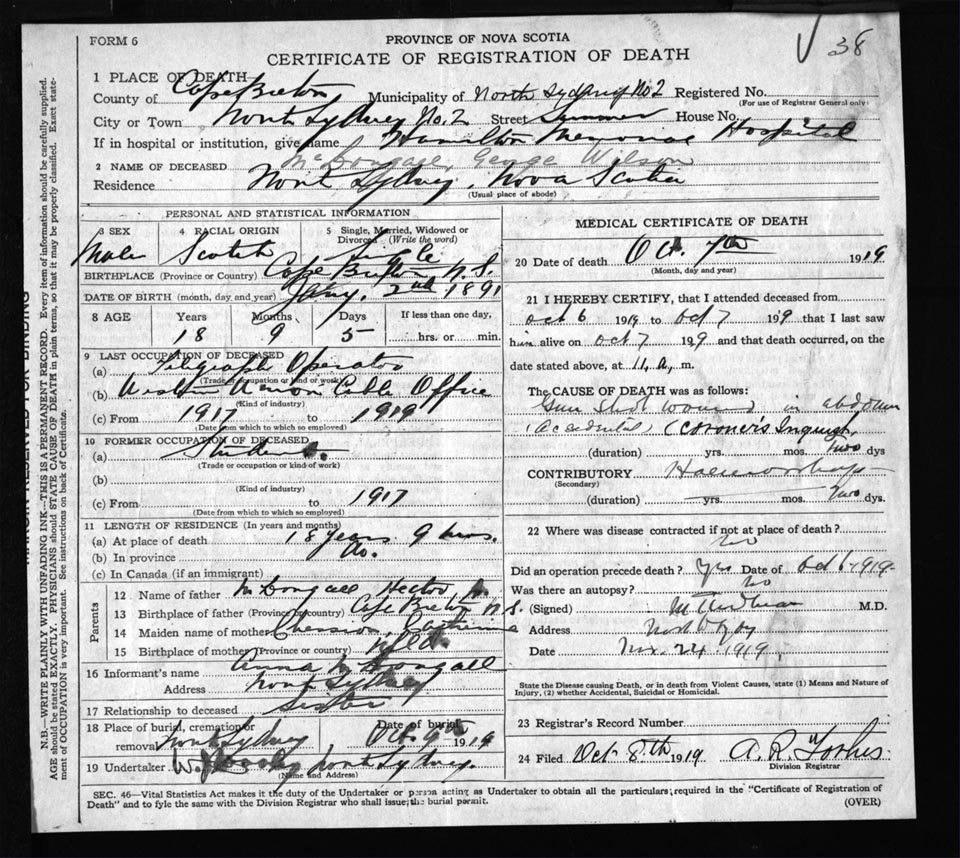 FORM 6
PROVINCE OF NOVA SCOTIA
38
CERTIFICATE OF REGISTRATION OF DEATH
1 PLACE OF DEATH—
County of Cape Breton Municipality of North Sydney No 2 Registered No.
(For use of Registrar General only)
City or Town North Sydney No. 2 Street Summer House No.
If in hospital or institution, give name Hamilton Memorial Hospital
2 NAME OF DECEASED McDougall, George Wilson
Residence North Sydney, Nova Scotia
(Usual place of abode)
PERSONAL AND STATISTICAL INFORMATION
3 SEX 4 RACIAL ORIGIN 5 Single, Married, Widowed or Divorced (Write the word)
Male Scotch Single
BIRTHPLACE (Province or Country) Cape Breton N.S.
DATE OF BIRTH (month, day, and year) Jany. 2nd 1891
8 AGE Years Months Days If less than one day,
18 9 5 hrs. or min.
9 LAST OCCUPATION OF DECEASED
(a) Telegraph Operator
(Trade or occupation or kind of work)
(b) Western Union Cable Office
(Kind of industry)
(c) From 1917 to 1919
(Date from which to which so employed)
10 FORMER OCCUPATION OF DECEASED
(a) Student
(Trade or occupation or kind of work)
(b)
(Kind of industry)
(c) From to 1917
(Date from which to which so employed)
11 LENGTH OF RESIDENCE (In years and months)
(a) At place of death 18 years 9 mos.
(b) In province Do.
(c) In Canada (if an immigrant)
Parents
12 Name of father McDougall Hector
13 Birthplace of father (Province or country) Cape Breton N.S.
14 Maiden name of mother Catherine
15 Birthplace of mother (Province or country) Nfld.
16 Informant's name Anna McDougall
Address North Sydney
17 Relationship to deceased Sister
18 Place of burial, cremation or removal North Sydney Date of burial Oct. 9th 1919
19 Undertaker North Sydney.
(Name and Address)
MEDICAL CERTIFICATE OF DEATH
20 Date of death Oct. 7th 1919
(Month, day and year)
21 I HEREBY CERTIFY, that I attended deceased from
Oct 6 1919 to Oct 7 1919 that I last saw
him alive on Oct 7 1919 and that death occurred, on the
date stated above, at 11, a. m.
The CAUSE OF DEATH was as follows:
Gun Shot wound in abdomen
(Accidental) (Coroner's Inquest,
(duration) yrs. mos. Two dys
CONTRIBUTORY Haemorrhage
(Secondary)
(duration) yrs. mos. Two dys.
22 Where was disease contracted if not at place of death?
Did an operation precede death? Yes Date of Oct 6 1919
Was there an autopsy? No
(Signed) M.D.
Address North Sydney
Date Nov. 24 1919.
State the Disease causing Death, or in death from Violent Causes, state (1) Means and Nature of
Injury, (2) whether Accidental, Suicidal or Homicidal.
23 Registrar's Record Number
24 Filed Oct 8th 1919 A. R. Forbes
Division Registrar
SEC. 46—Vital Statistics Act makes it the duty of the Undertaker or person acting as Undertaker to obtain all the particulars required in the "Certificate of Registration of
Death" and to fyle the same with the Division Registrar who shall issue the burial permit.
(OVER)
MARGIN RESERVED FOR BINDING
N.B.—WRITE PLAINLY WITH UNFADING INK—THIS IS A PERMANENT RECORD. Every item of information should be carefully supplied.
AGE should be stated EXACTLY. PHYSICIANS should STATE CAUSE OF DEATH in plain terms, so that it may be properly classified. Exact state-
ment of OCCUPATION is very important. See instructions on back of Certificate.